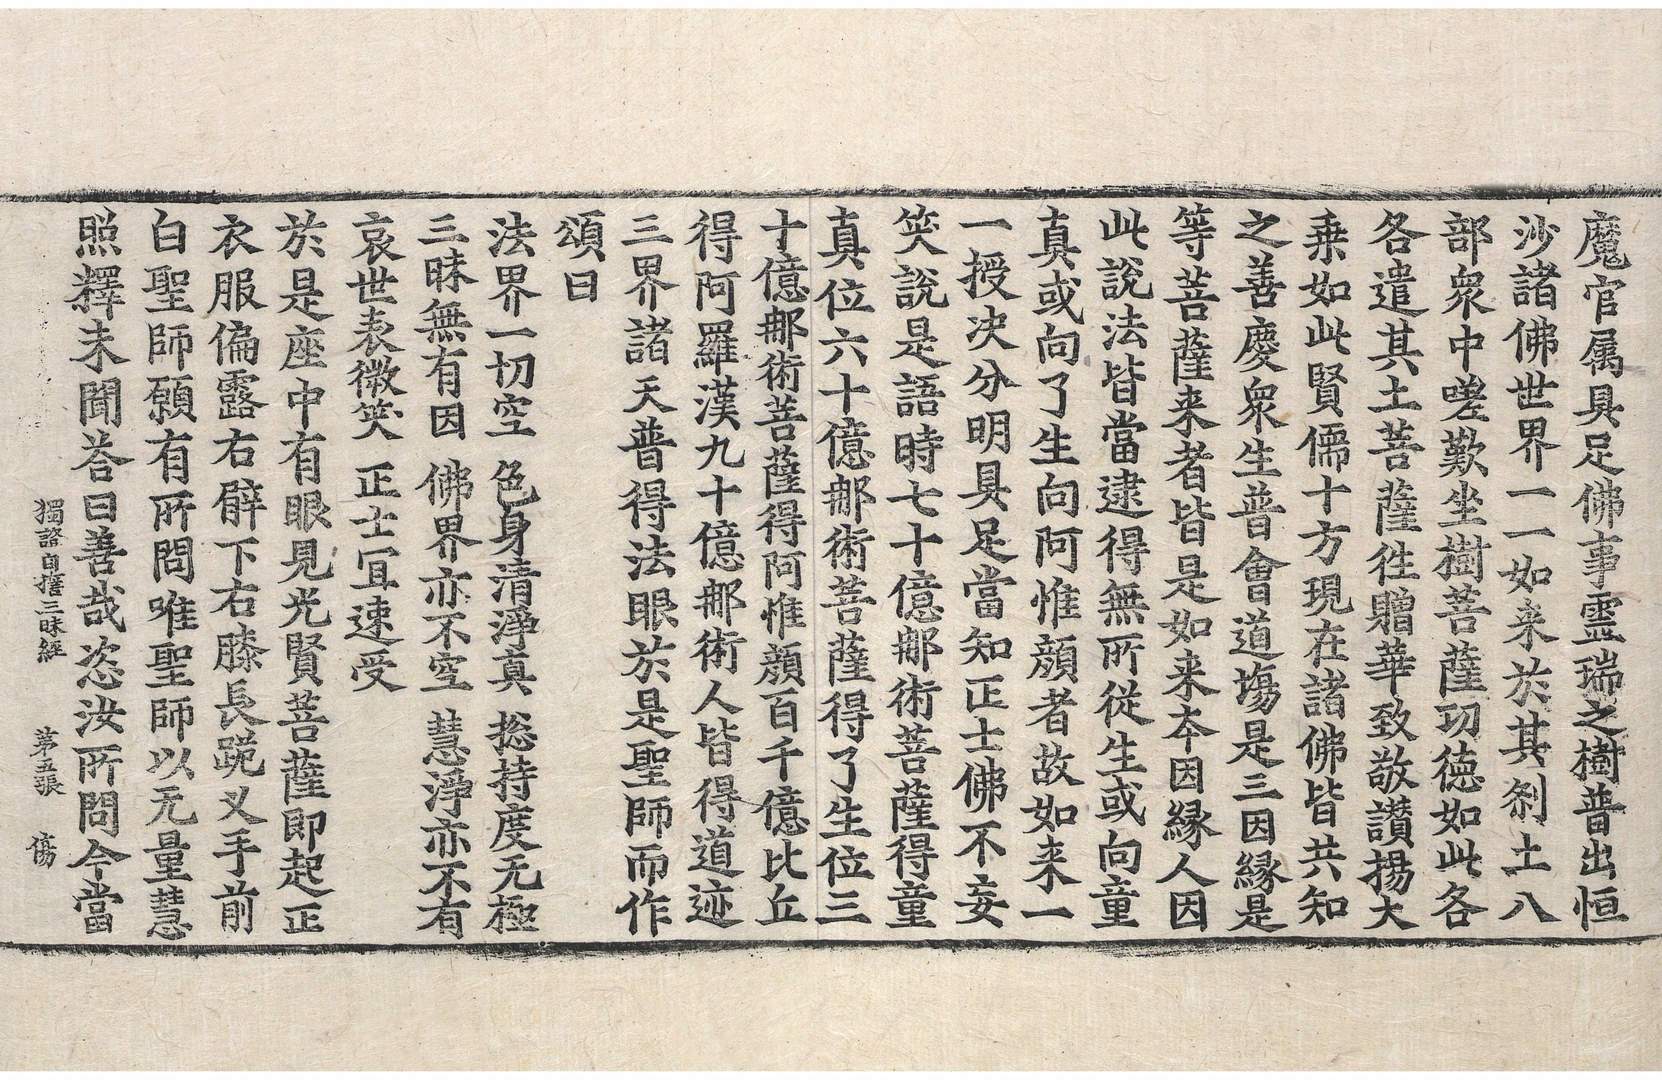 魔官属具足佛事霊瑞之樹普出恒
沙諸佛世界一一如来於其刹土八
部衆中嗟歎坐樹菩薩功徳如此各
各遣其土菩薩徃贈華致敬讃揚大
乗如此賢儒十方現在諸佛皆共知
之善慶衆生普會道塲是三因縁是
等菩薩来者皆是如来夲因縁人因
此說法皆當逮得無所從生或向童
真或向了生向阿惟顔者故如来一
一授决分明具足當知正士佛不妄
笑說是語時七十億郍術菩薩得童
真位六十億郍術菩薩得了生位三
十億郍術菩薩得阿惟顔百千億比丘
得阿羅漢九十億郍術人皆得道迹
三界諸天普得法眼於是聖師而作
頌曰
法界一切空 色身清淨真 捴持度无極
三昧無有因 佛界亦不空 慧淨亦不有
哀世表微笑 正士宜速受
於是座中有眼見光賢菩薩即起正
衣服偏露右臂下右膝長跪叉手前
白聖師願有所問唯聖師以无量慧
照釋未聞荅曰善哉恣汝所問今當
獨證自誓三昧經 第五張 傷